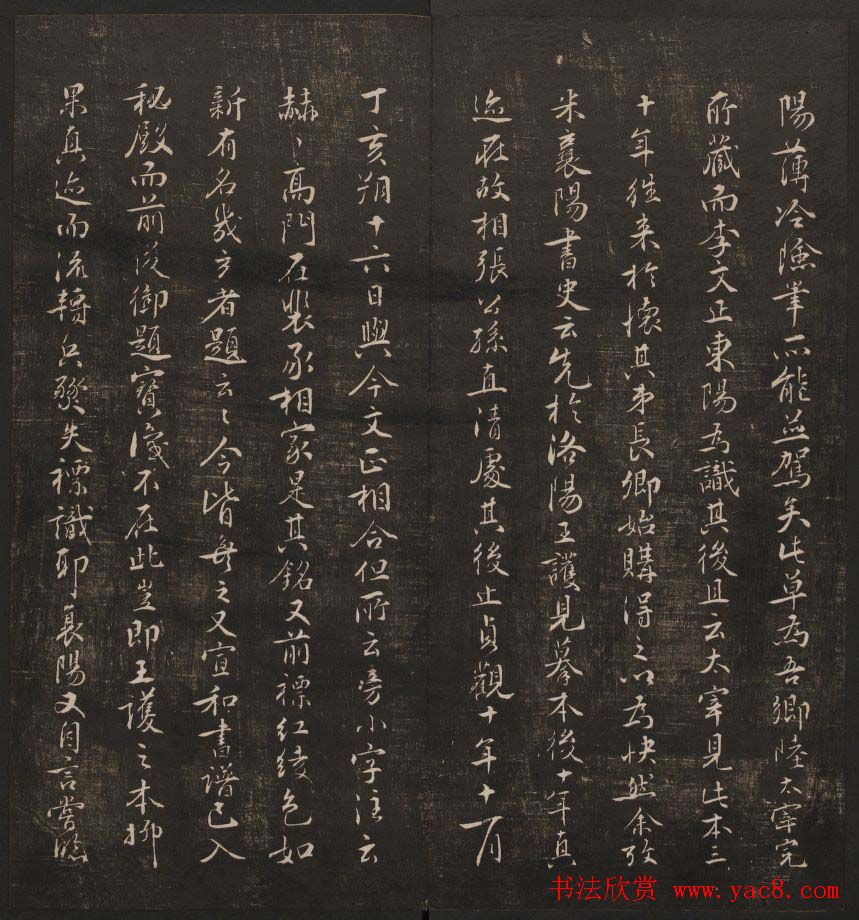 陽薄冷險峯不能並駕矣此草為吾鄉陸太宰完
所藏而李文正東陽為識其後且云太宰見此本三
十年往来於懷其弟長卿始購得之以為快然余攷
米襄陽書史云先於洛陽王護見摹本後十年真
迹在故相張公孫直清處其後止貞觀十年十一月
丁亥朔十六日與今文正相合但所云旁小字注云
赫〻高門在裴丞相家是其銘又前標紅綾色如
新有名幾玄者題云〻今皆無之又宣和書譜已入
秘殿而前後御題寶識不在此豈即王護之本抑
果真迹而流轉兵燹失標識耶襄陽又自言嘗臨
书法欣赏 www.yac8.com